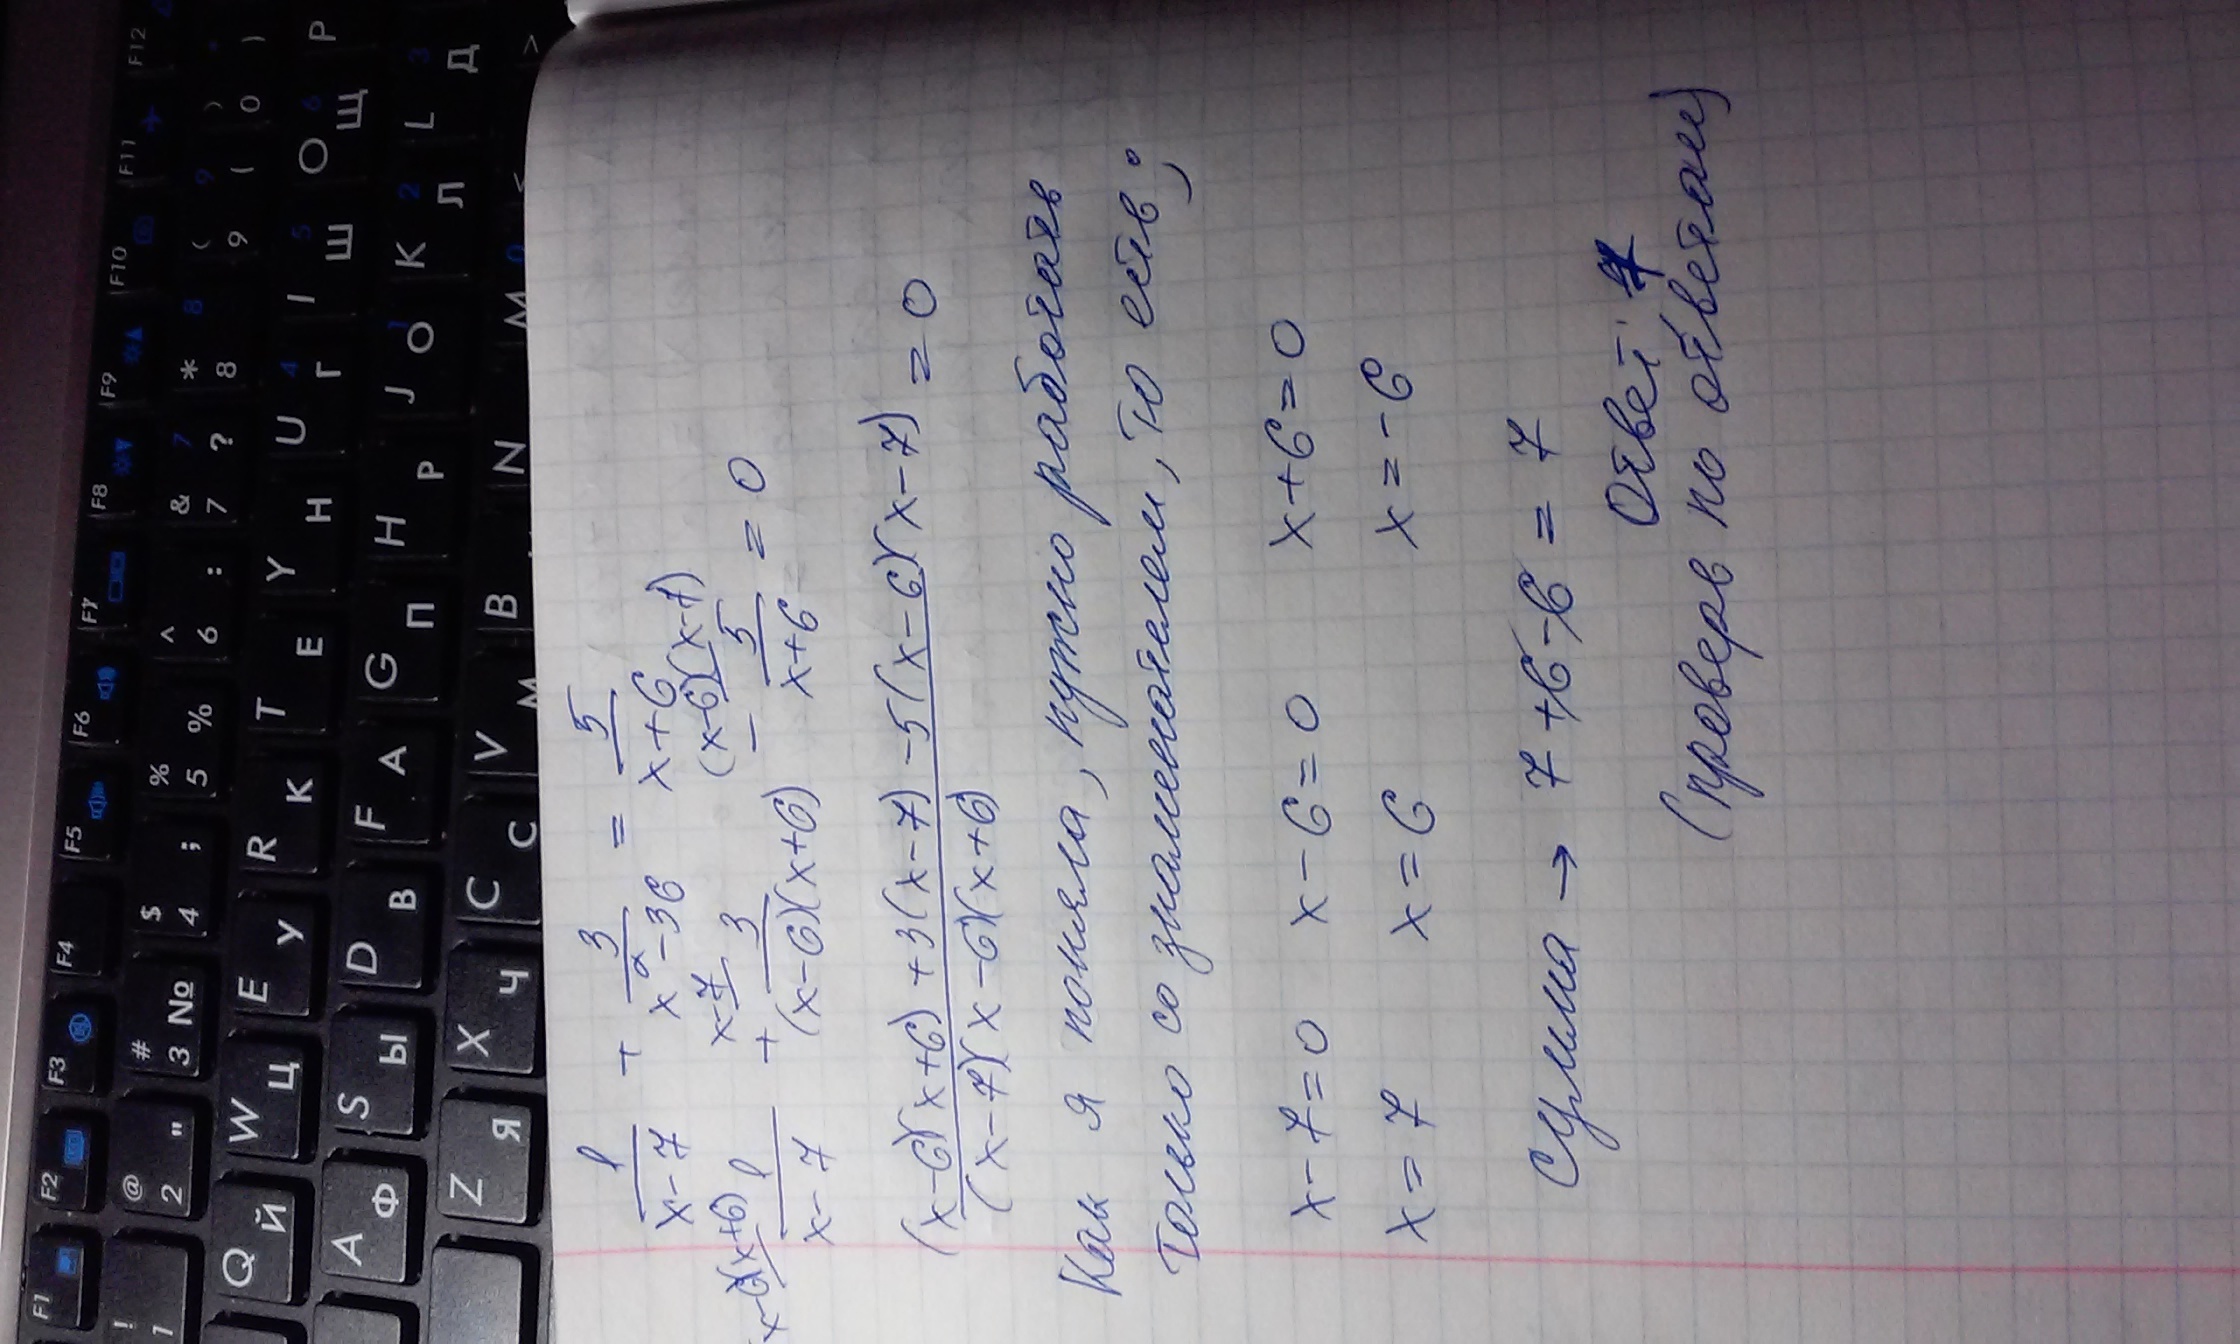 1/(x-7) + 3/(x²-36) = 5/(x+6)
(x-6)(x+6) 1/(x-7) + x-7 3/((x-6)(x+6)) - (x-6)(x-7) 5/(x+6) = 0
((x-6)(x+6)+3(x-7)-5(x-6)(x-7))/((x-7)(x-6)(x+6)) = 0
Как я поняла, нужно работать
только со знаменателем, то есть;
x-7=0 x-6=0 x+6=0
x=7 x=6 x=-6
Сумма → 7+6-6=7
Ответ: 7
(проверь по ответам)
F1 F2 F3 F4 F5 F6 F7 F8 F9 F10 F11 F12
! 1 @ 2 " # 3 № $ 4 ; % 5 % ^ 6 : & 7 ? 7 * 8 8 ( 9 ( 9 ) 0 ) *
Q Й W Ц E У R К T Е Y Н U Г 4 I Ш 5 O Щ 6 P
A Ф S Ы D В F А G П H Р J О 1 K Л 2 L Д 3
Z Я X Ч C С V М B N M 0 < >